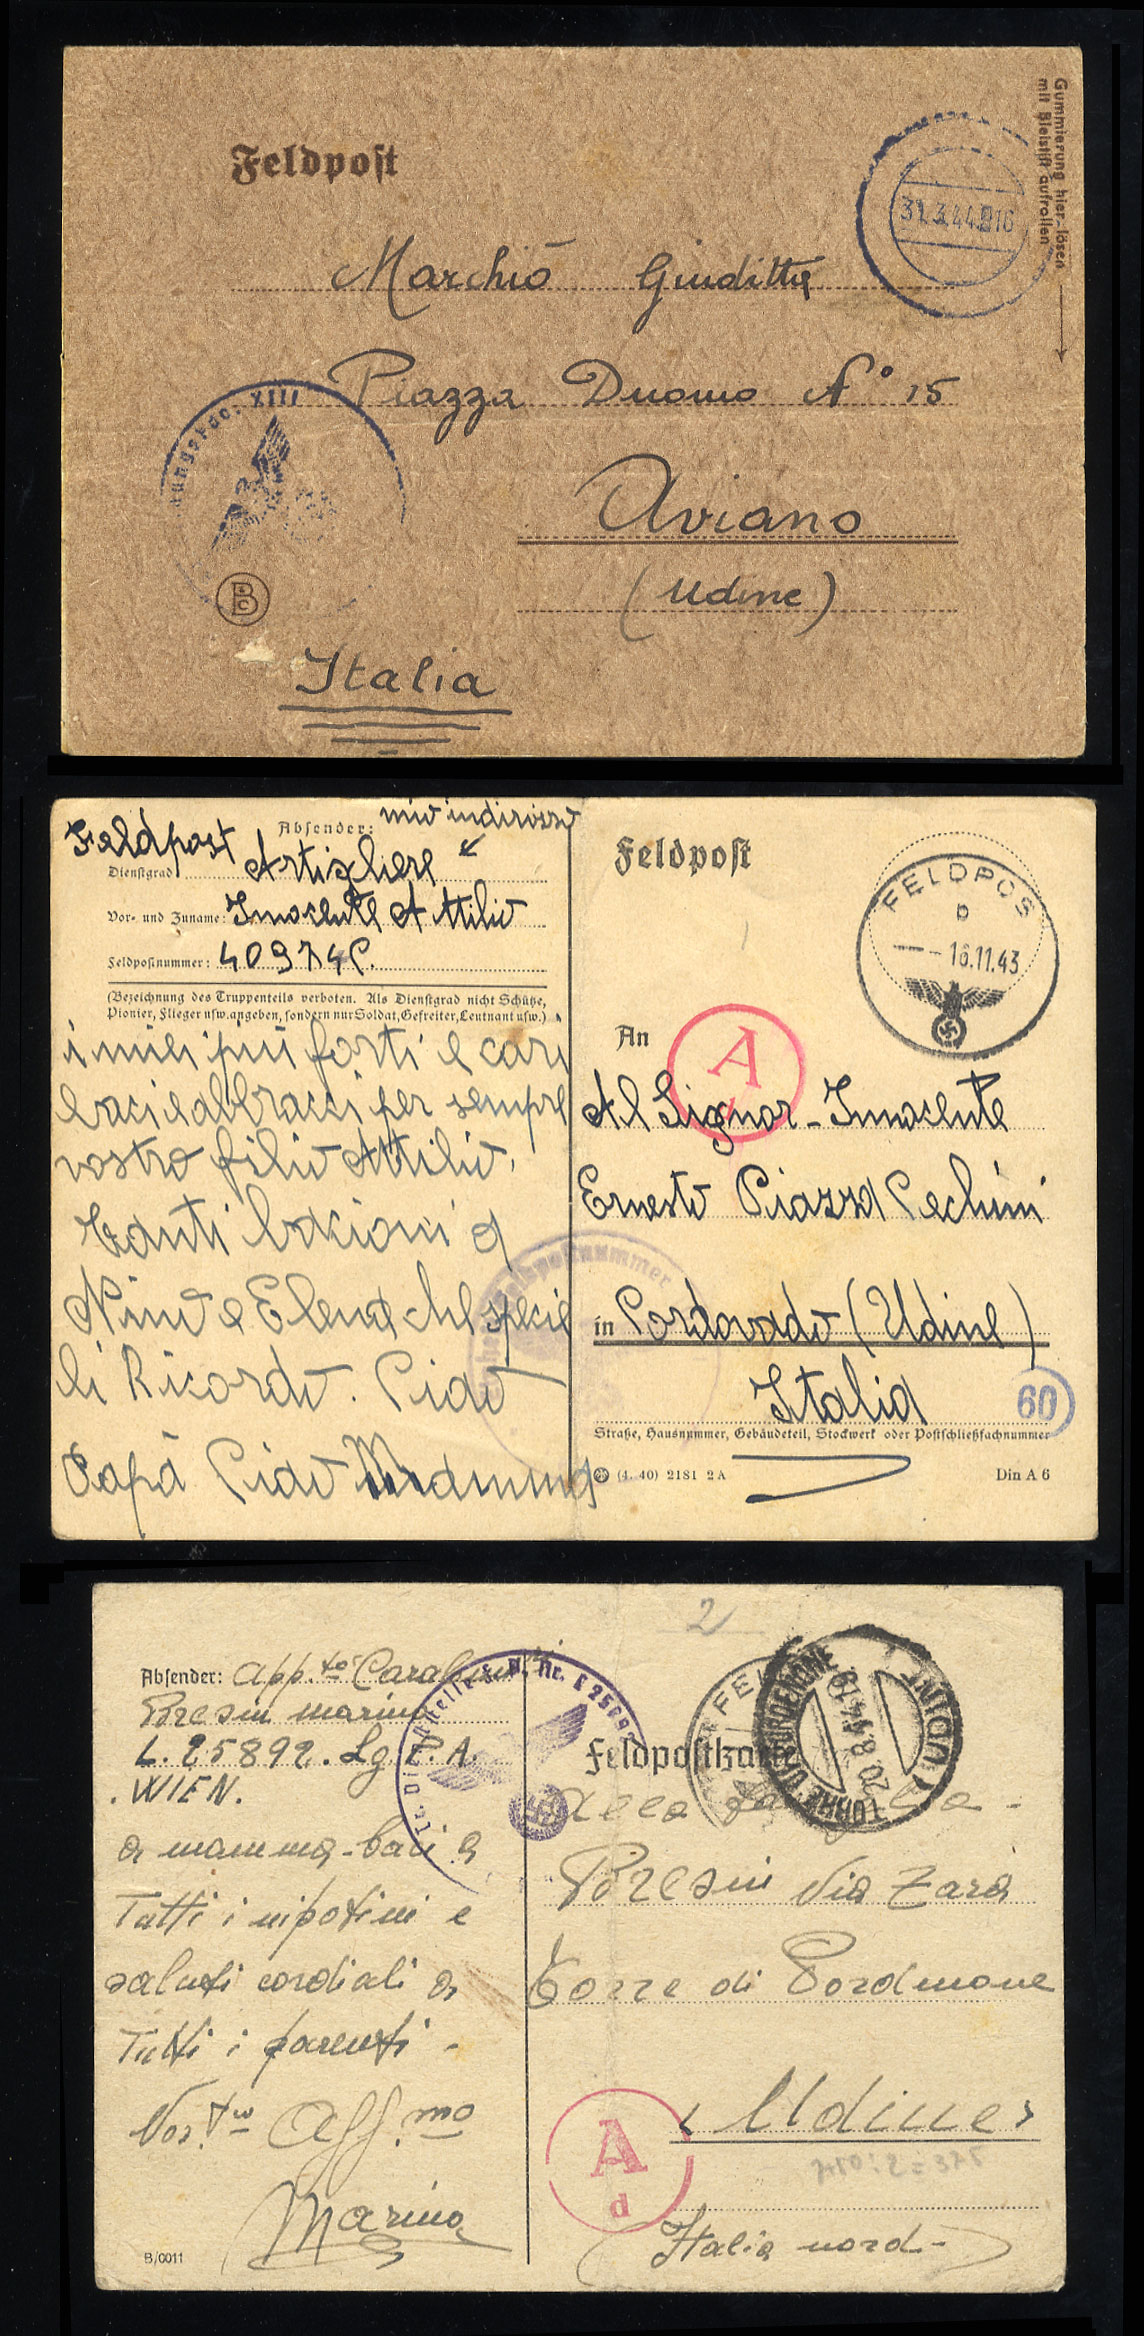 Feldpost
Gummierung hier lösen
mit Bleistift aufrollen
31.3.44 16
Marchiò Giuditta
Piazza Duomo N° 15
XIII
Aviano
(Udine)
B
Italia
mio indirizzo
Feldpost
Absender:
Dienstgrad Artigliere
Vor- und Zuname: Innocente Attilio
Feldpostnummer: 40974C.
(Bezeichnung des Truppenteils verboten. Als Dienstgrad nicht Schütze,
Pionier, Flieger usw. angeben, sondern nur Soldat, Gefreiter, Leutnant usw.)
i miei più forti e cari
baci e abbracci per sempre
vostro filio Attilio.
Tanti bacioni a
Nino e Elena che specie
li Ricordo. Ciao
Papà Ciao Mamma
Feldpost
FELDPOS
b
16.11.43
An
A
Al Signor - Innocente
Ernesto Piazza Cechini
in Cordovado (Udine)
Italia
60
Straße, Hausnummer, Gebäudeteil, Stockwerk oder Postschließfachnummer
(4. 40) 2181 2A
Din A 6
2
Absender: App.to Carabin
Bresin marino
L. 25892. Lg. P. A.
.WIEN.
a mamma - baci a
Tutti i nipotini e
saluti cordiali a
Tutti i parenti -
Vos.tro Aff.mo
Marino
B/0011
Dienststelle F. P. Nr. L 25892
Feldpostkarte
20.8.44
Bresin Via Zara
Torre di Pordenone
(Udine)
750:2=375
A
d
Italia nord -